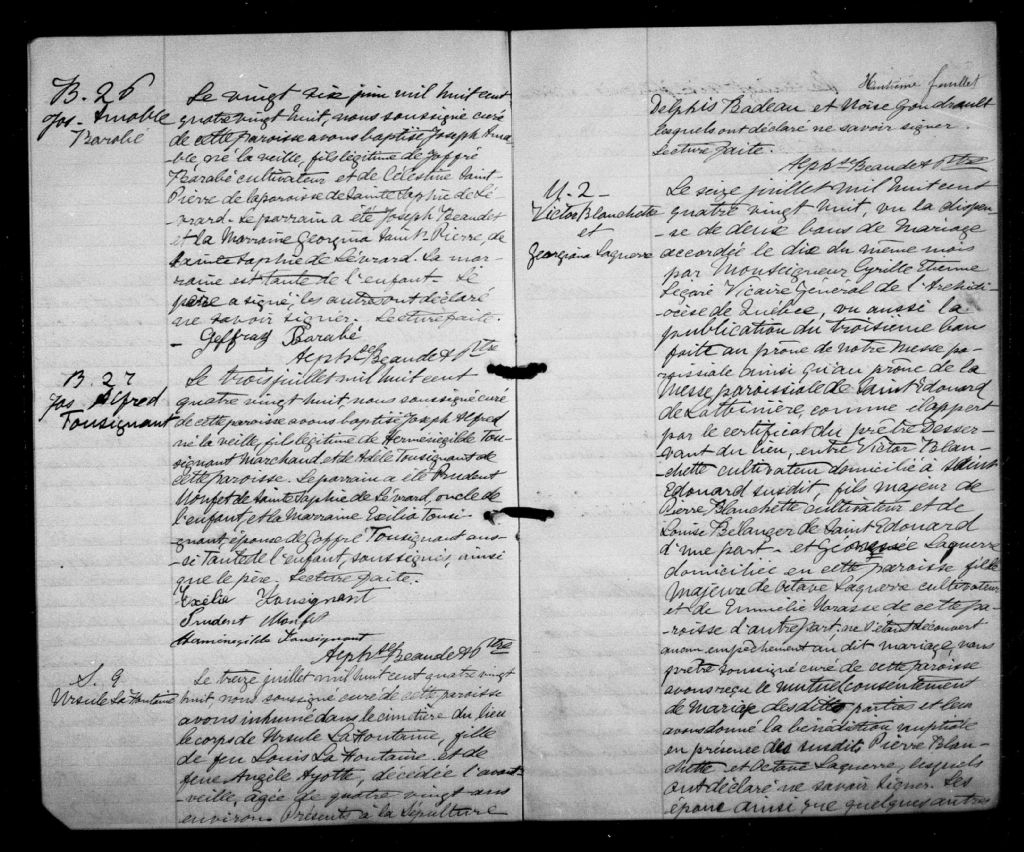 B. 26
Jos. Amable
Barabé
Le vingt six juin mil huit cent
quatre vingt huit, nous soussigné curé
de cette paroisse avons baptisé Joseph Ama-
ble né la veille, fils légitime de Joffré
Barabé cultivateur et de Célestine Saint
Pierre de la paroisse de Sainte Sophie de Lé-
vrard. Le parrain a été Joseph Beaudet
et la Marraine Georgina Saint Pierre, de
Sainte Sophie de Lévrard. La mar-
raine est tante de l'enfant. Le
père a signé, les autres ont déclaré
ne savoir signer. Lecture faite.
Geffray Barabé
Alph. Beaudet Ptre
B. 27
Jos. Alfred
Tousignant
Le trois juillet mil huit cent
quatre vingt huit, nous soussigné curé
de cette paroisse avons baptisé Joseph Alfred
né la veille, fils légitime de Herménégilde Tou-
signant Marchand et de Adèle Tousignant de
cette paroisse. Le parrain a été Prudent
Monfet de Sainte Sophie de Lévrard, oncle de
l'enfant, et la Marraine Exilia Tousi-
gnant, épouse de Joffré Tousignant aus-
si tante de l'enfant, soussignés, ainsi
que le père. Lecture faite.
Exélia Tousignant
Prudent Monfet
Herménégilde Tousignant
Alph. Beaudet Ptre
S. 9
Ursule La Fontaine
Le treize juillet mil huit cent quatre vingt
huit, nous soussigné curé de cette paroisse
avons inhumé dans le cimetière du lieu
le corps de Ursule La Fontaine, fille
de feu Louis La Fontaine et de
feue Angèle Ayotte, décédée l'avant
veille, agée de quatre vingt ans
environ. Présents à la sépulture
Huitième feuillet
Delphis Badeau et Moise Grondrault
lesquels ont déclaré ne savoir signer.
Lecture faite.
Alph. Beaudet Ptre
M. 2
Victor Blanchette
et
Georgiana Laquerre
Le seize juillet mil huit cent
quatre vingt huit, vu la dispen-
se de deux bans de mariage
accordée le dix du même mois
par Monseigneur Cyrille Etienne
Légaré Vicaire Général de l'Archidi-
ocèse de Québec, vu aussi la
publication du troisième ban
faite au prône de notre messe pa-
roissiale ainsi qu'au prône de la
Messe paroissiale de Saint Edouard
de Lotbinière, comme il appert
par le certificat du prêtre Desser-
vant du lieu, entre Victor Blan-
chette cultivateur domicilié à Saint
Edouard susdit, fils majeur de
Pierre Blanchette cultivateur et de
Louise Bélanger de Saint Edouard
d'une part - et Laquerre
domiciliée en cette paroisse fille
majeure de Octave Laquerre cultivateur
et de Emmélie Vorasse de cette pa-
roisse d'autre part, ne s'étant découvert
aucun empêchement au dit mariage, nous
prêtre soussigné curé de cette paroisse
avons reçu le mutuel consentement
de mariage des dittes parties et leur
avons donné la bénédiction nuptiale
en présence des susdits Pierre Blan-
chette et Octave Laquerre, lesquels
ont déclaré ne savoir signer. Les
époux ainsi que quelques autres